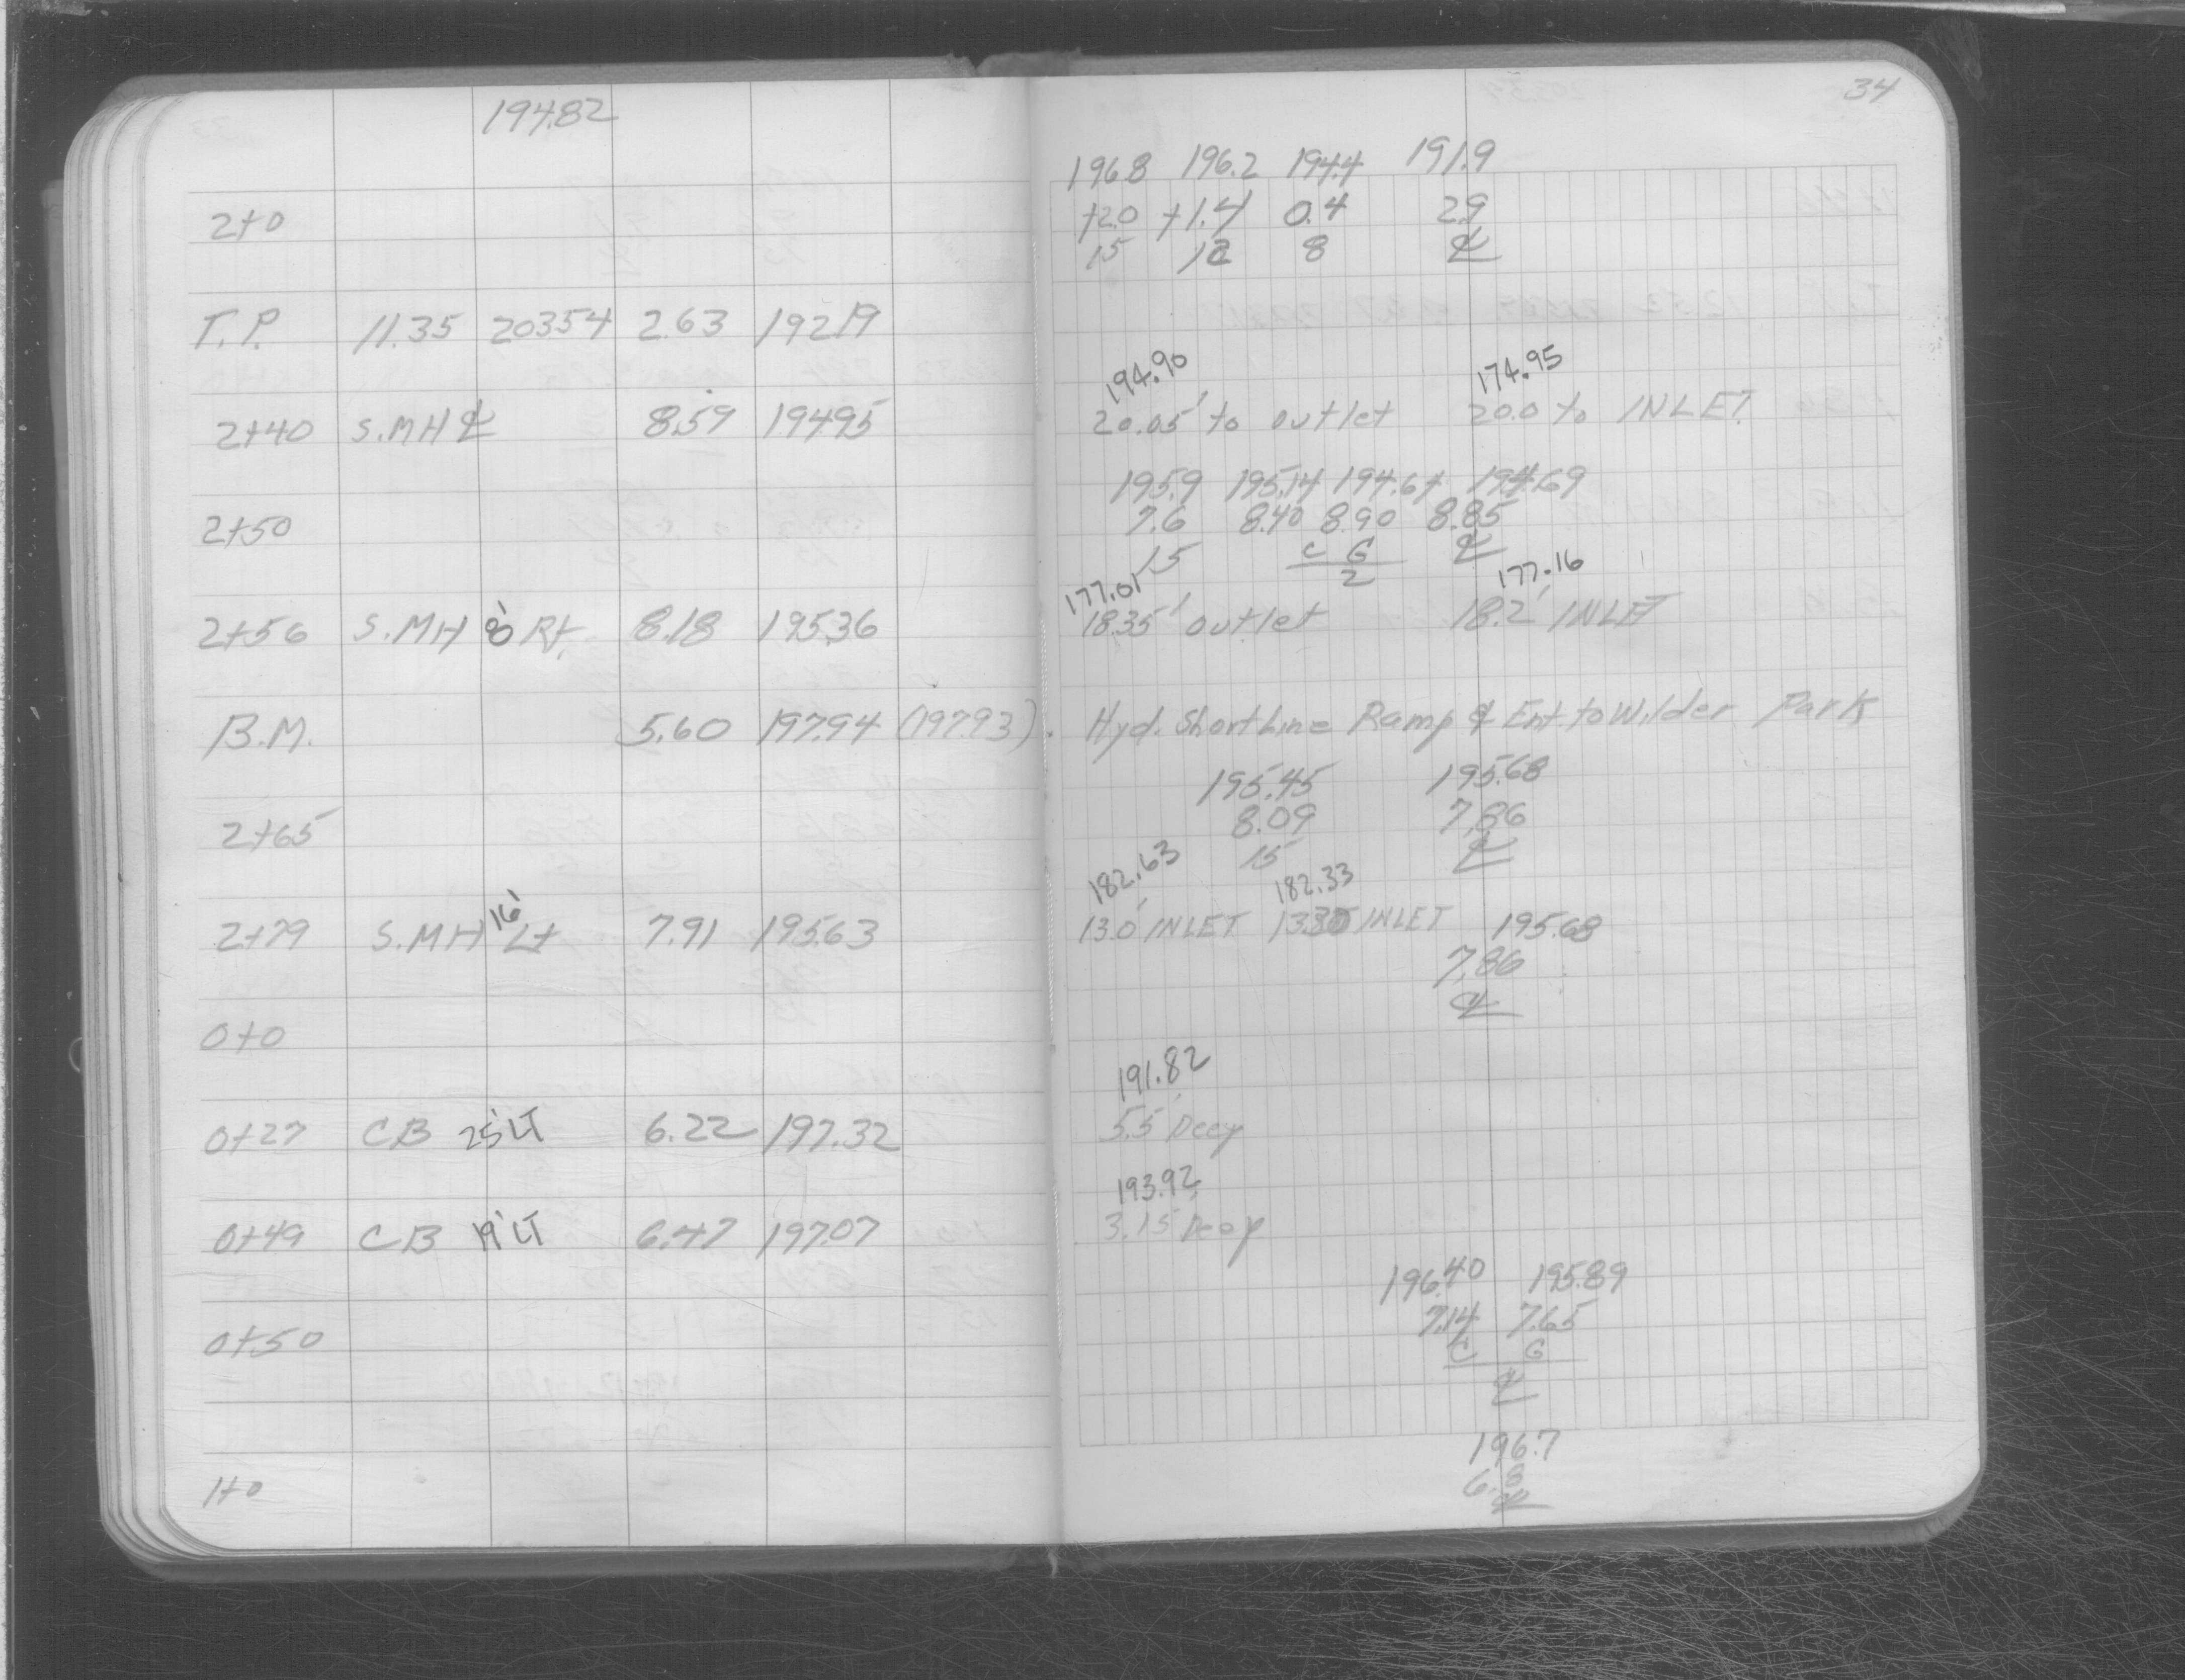 194.82
2+0
T.P. 11.35 203.54 2.63 192.19
2+40 S.MH ℄ 8.59 194.95
2+50
2+56 S.MH 8' Rt. 8.18 195.36
B.M. 5.60 197.94 (197.93)
2+65
2+79 S.MH 16' Lt 7.91 195.63
0+0
0+27 CB 25' LT 6.22 197.32
0+49 CB 19' LT 6.47 197.07
0+50
1+0
34
196.8 196.2 194.4 191.9
+2.0 +1.4 0.4 2.9
15 12 8 ℄
194.90 174.95
20.05' to outlet 20.0 to INLET
195.9 195.14 194.64 194.69
7.6 8.40 8.90 8.85
15 C G ℄
2
177.01 177.16
18.35' outlet 18.2' INLET
Hyd. Short Line Ramp & Ent. to Wilder Park
195.45 195.68
8.09 7.86
15 ℄
182.63 182.33
13.0' INLET 13.30 INLET 195.68
7.86
℄
191.82
5.5' Deep
193.92
3.15' Deep
196.40 195.89
7.14 7.65
C G
℄
196.7
6.8
℄